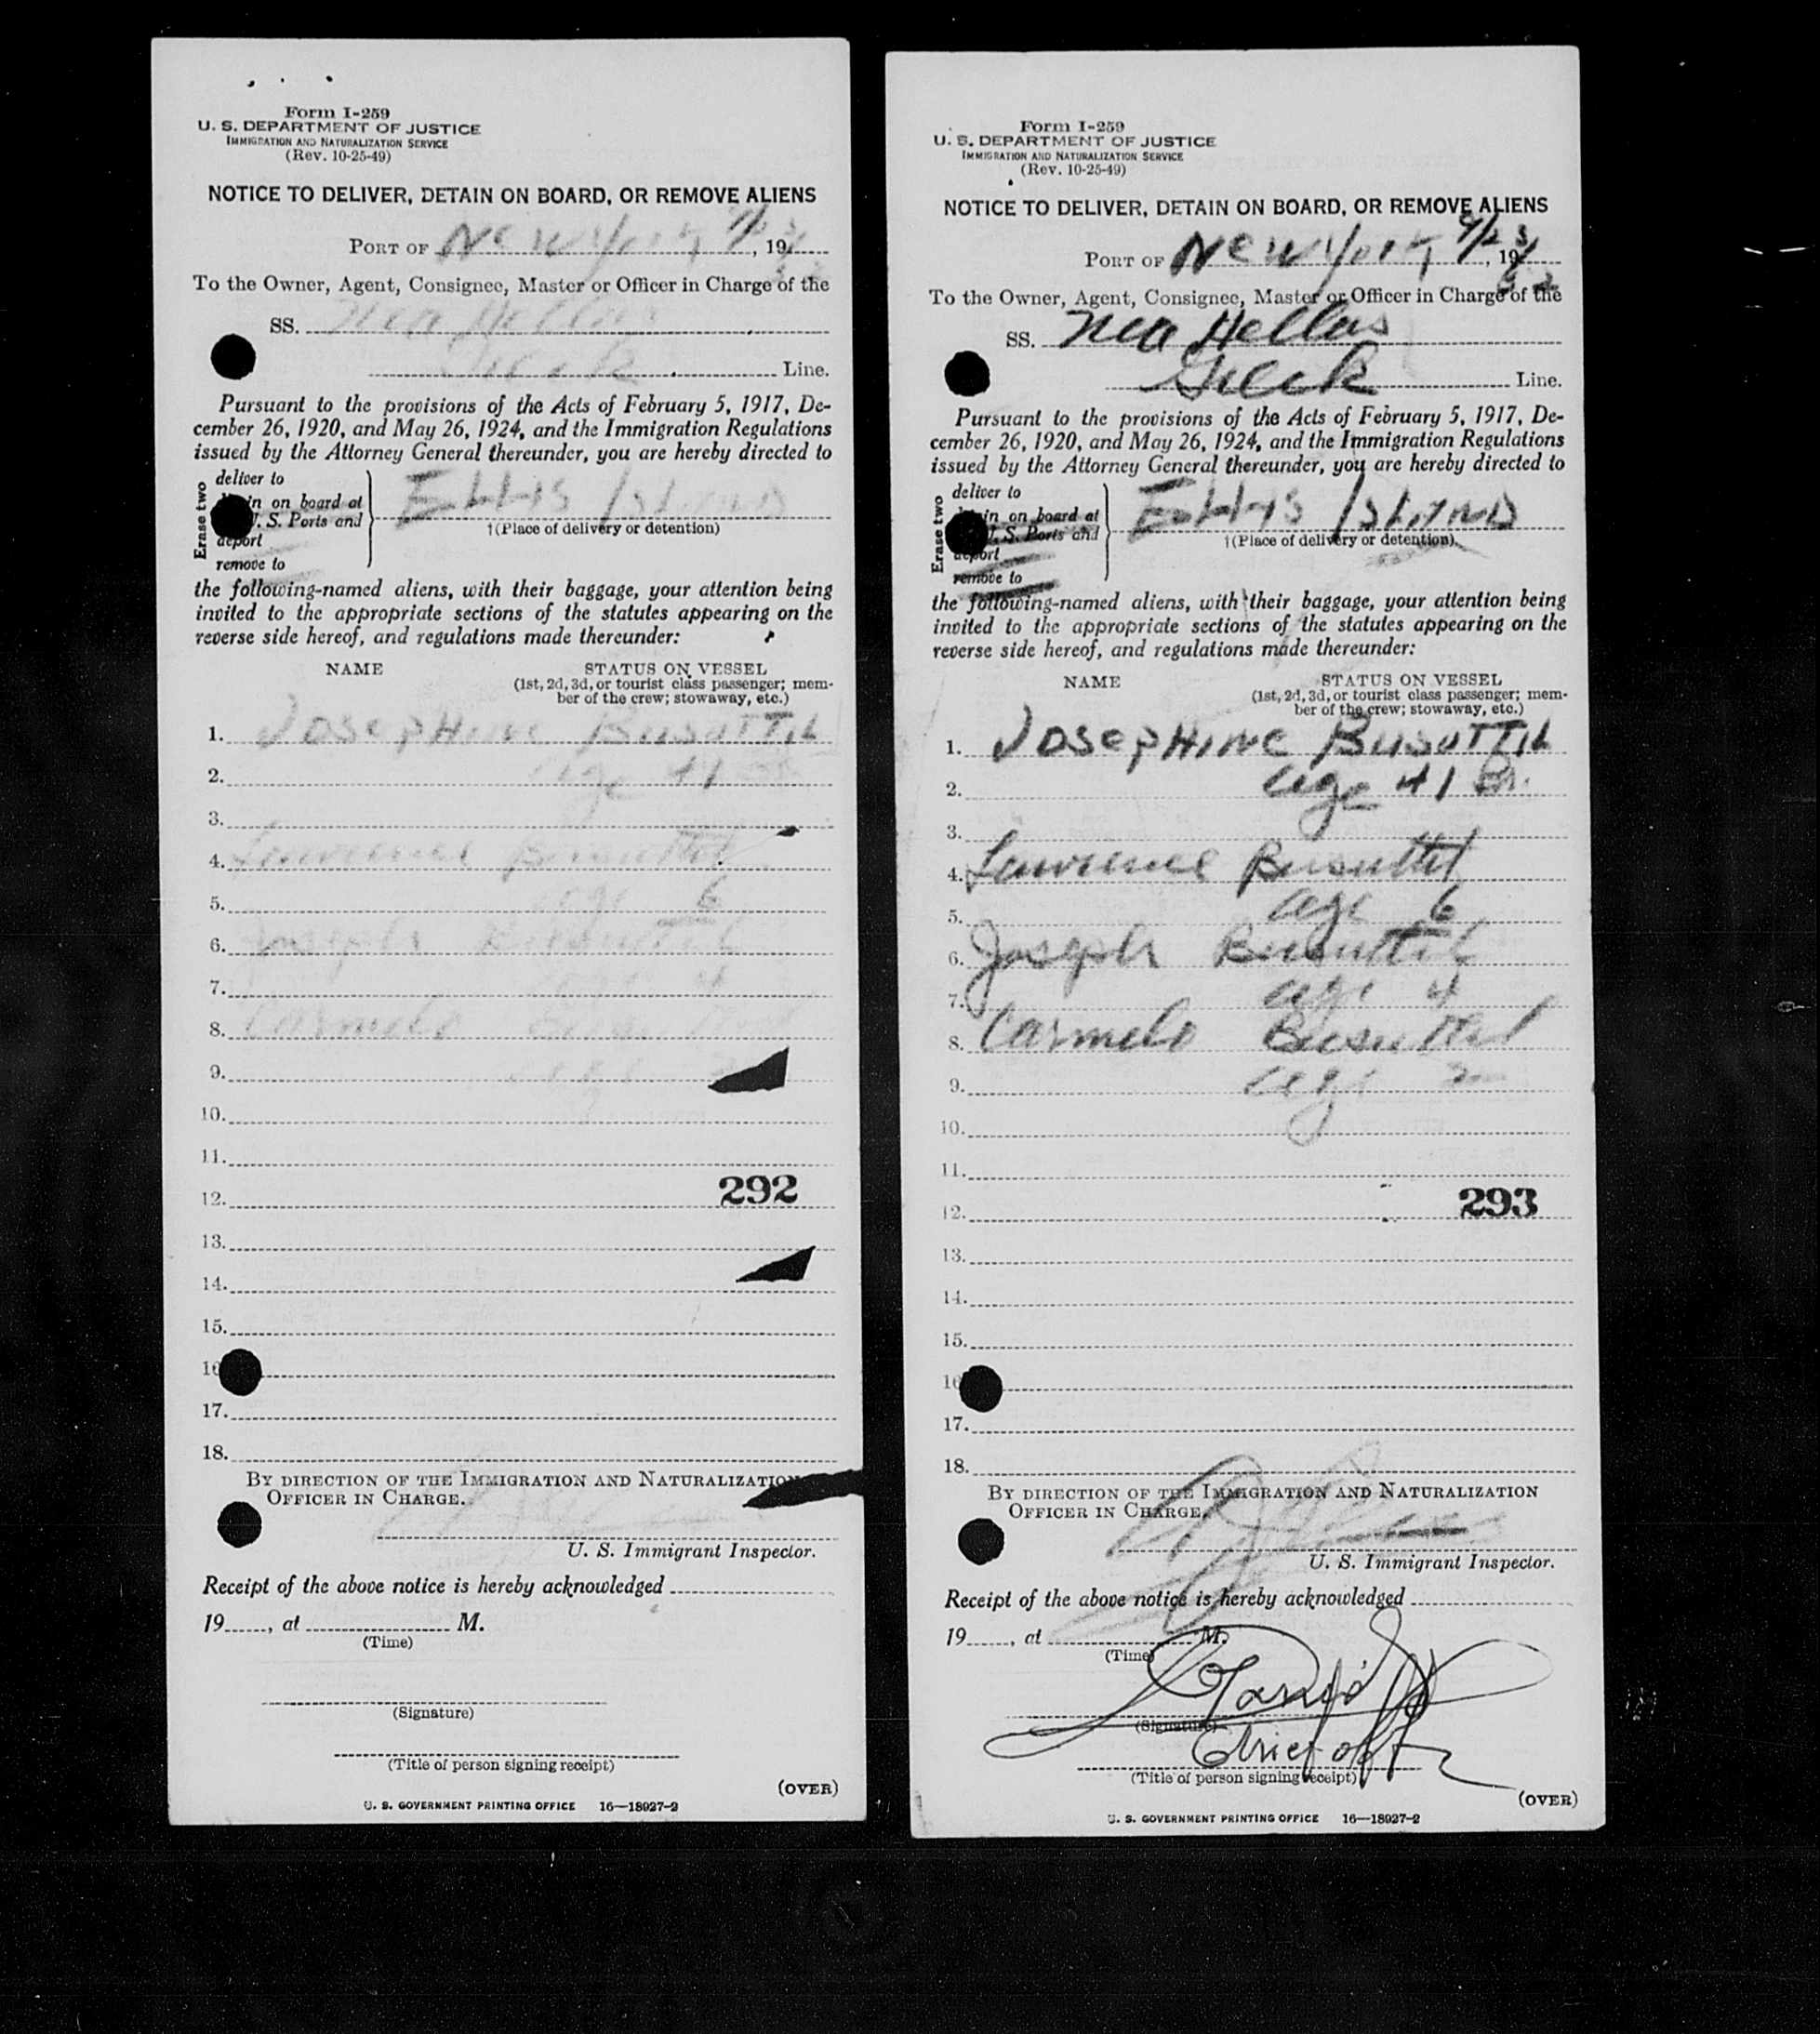 Form I-259
U. S. DEPARTMENT OF JUSTICE
IMMIGRATION AND NATURALIZATION SERVICE
(Rev. 10-25-49)
NOTICE TO DELIVER, DETAIN ON BOARD, OR REMOVE ALIENS
PORT OF New York, 19
To the Owner, Agent, Consignee, Master or Officer in Charge of the
SS. Nea Hellas
Greek Line.
Pursuant to the provisions of the Acts of February 5, 1917, De-
cember 26, 1920, and May 26, 1924, and the Immigration Regulations
issued by the Attorney General thereunder, you are hereby directed to
Erase two
deliver to
in on board at
U. S. Ports and
deport
remove to
Ellis Island
†(Place of delivery or detention)
the following-named aliens, with their baggage, your attention being
invited to the appropriate sections of the statutes appearing on the
reverse side hereof, and regulations made thereunder:
NAME STATUS ON VESSEL
(1st, 2d, 3d, or tourist class passenger; mem-
ber of the crew; stowaway, etc.)
1. Josephine Busuttil
2. age 41
3.
4. Lawrence Busuttil
5. age 6
6. Joseph Busuttil
7. age 4
8. Carmelo Busuttil
9. age
10.
11.
12. 292
13.
14.
15.
16
17.
18.
BY DIRECTION OF THE IMMIGRATION AND NATURALIZATION
OFFICER IN CHARGE.
U. S. Immigrant Inspector.
Receipt of the above notice is hereby acknowledged
19, at M.
(Time)
(Signature)
(Title of person signing receipt)
(OVER)
U. S. GOVERNMENT PRINTING OFFICE 16—18927-2
Form I-259
U. S. DEPARTMENT OF JUSTICE
IMMIGRATION AND NATURALIZATION SERVICE
(Rev. 10-25-49)
NOTICE TO DELIVER, DETAIN ON BOARD, OR REMOVE ALIENS
PORT OF New York, 9/23, 19
To the Owner, Agent, Consignee, Master or Officer in Charge of the
SS. Nea Hellas
Greek Line.
Pursuant to the provisions of the Acts of February 5, 1917, De-
cember 26, 1920, and May 26, 1924, and the Immigration Regulations
issued by the Attorney General thereunder, you are hereby directed to
Erase two
deliver to
in on board at
U. S. Ports and
deport
remove to
Ellis Island
†(Place of delivery or detention)
the following-named aliens, with their baggage, your attention being
invited to the appropriate sections of the statutes appearing on the
reverse side hereof, and regulations made thereunder:
NAME STATUS ON VESSEL
(1st, 2d, 3d, or tourist class passenger; mem-
ber of the crew; stowaway, etc.)
1. Josephine Busuttil
2. age 41 Br.
3.
4. Lawrence Busuttil
5. age 6
6. Joseph Busuttil
7. age 4
8. Carmelo Busuttil
9. age 2
10.
11.
12. 293
13.
14.
15.
16
17.
18.
BY DIRECTION OF THE IMMIGRATION AND NATURALIZATION
OFFICER IN CHARGE.
U. S. Immigrant Inspector.
Receipt of the above notice is hereby acknowledged
19, at M.
(Time)
(Signature)
Chief off
(Title of person signing receipt)
(OVER)
U. S. GOVERNMENT PRINTING OFFICE 16—18927-2